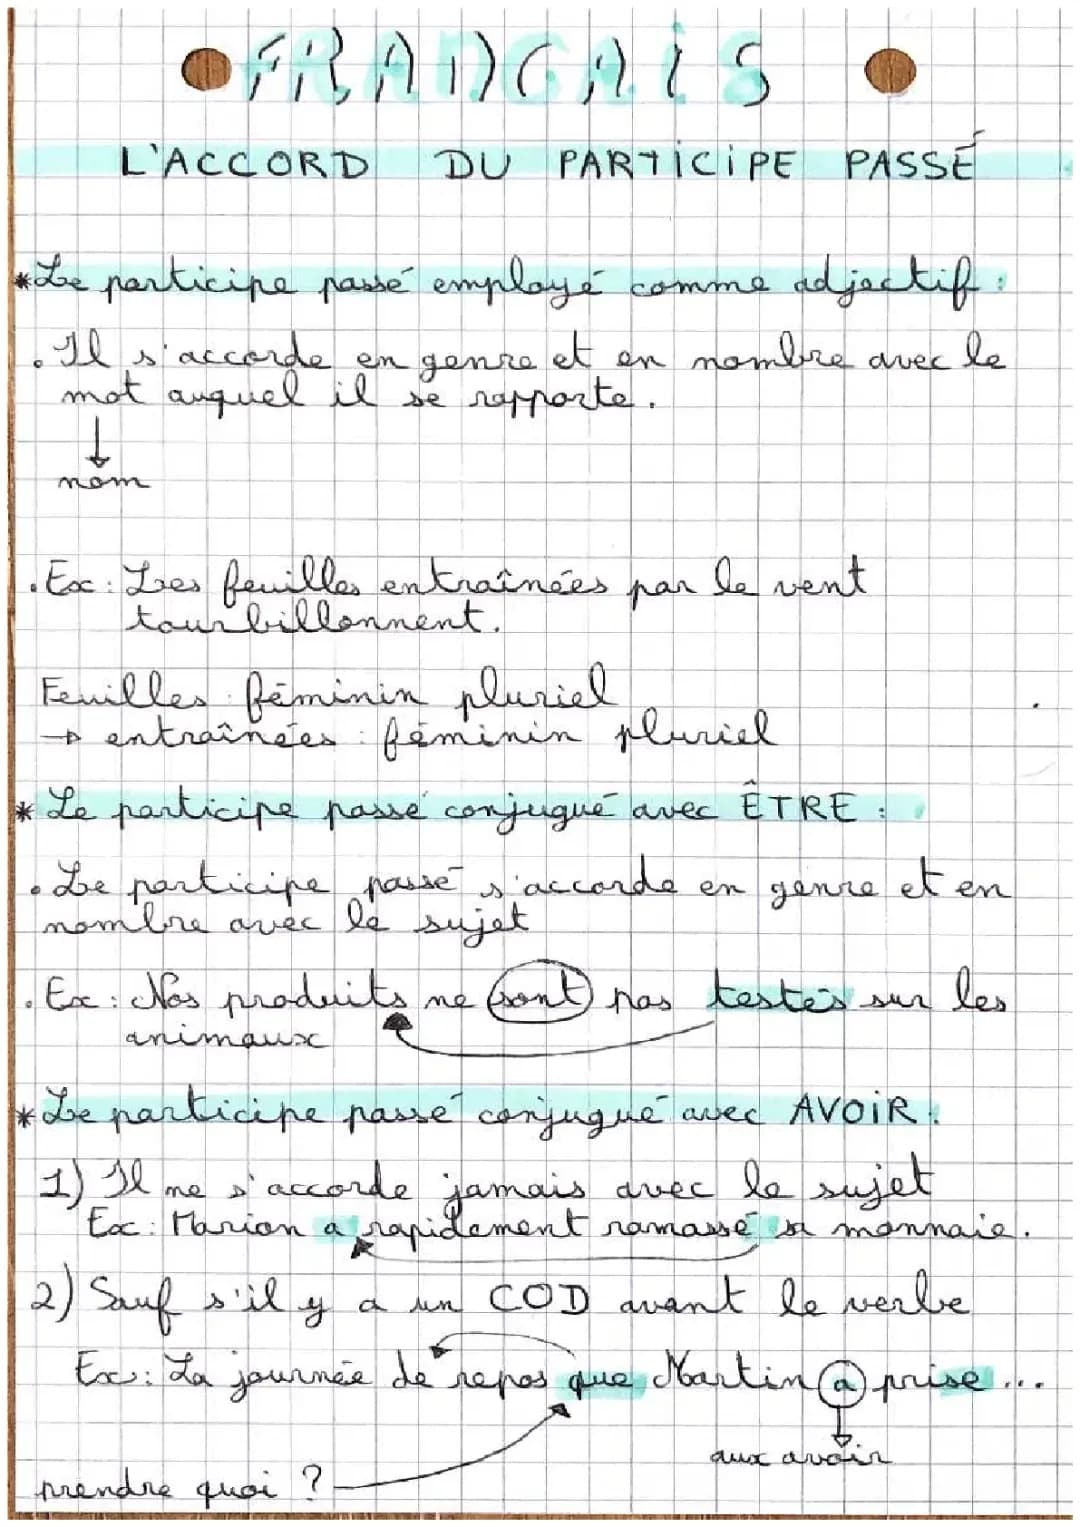 FRANCAIS
L'ACCORD DU PARTICIPE PASSÉ
*Le participe passé employé comme adjectif :
. Il s'accorde en genre et en nombre avec le
mot auquel il se rapporte.
nom
. Ex : Les feuilles entraînées par le vent
tourbillonnent.
Feuilles : féminin pluriel
→ entraînées : féminin pluriel
* Le participe passé conjugué avec ÊTRE :
. Le participe passé s'accorde en genre et en
nombre avec le sujet
. Ex : Nos produits ne sont pas testés sur les
animaux
*Le participe passé conjugué avec AVOIR :
1) Il ne s'accorde jamais avec le sujet
Ex : Marion a rapidement ramassé sa monnaie.
2) Sauf s'il y a un COD avant le verbe
Ex : La journée de repos que Martin a prise ...
aux avoir
prendre quoi ?